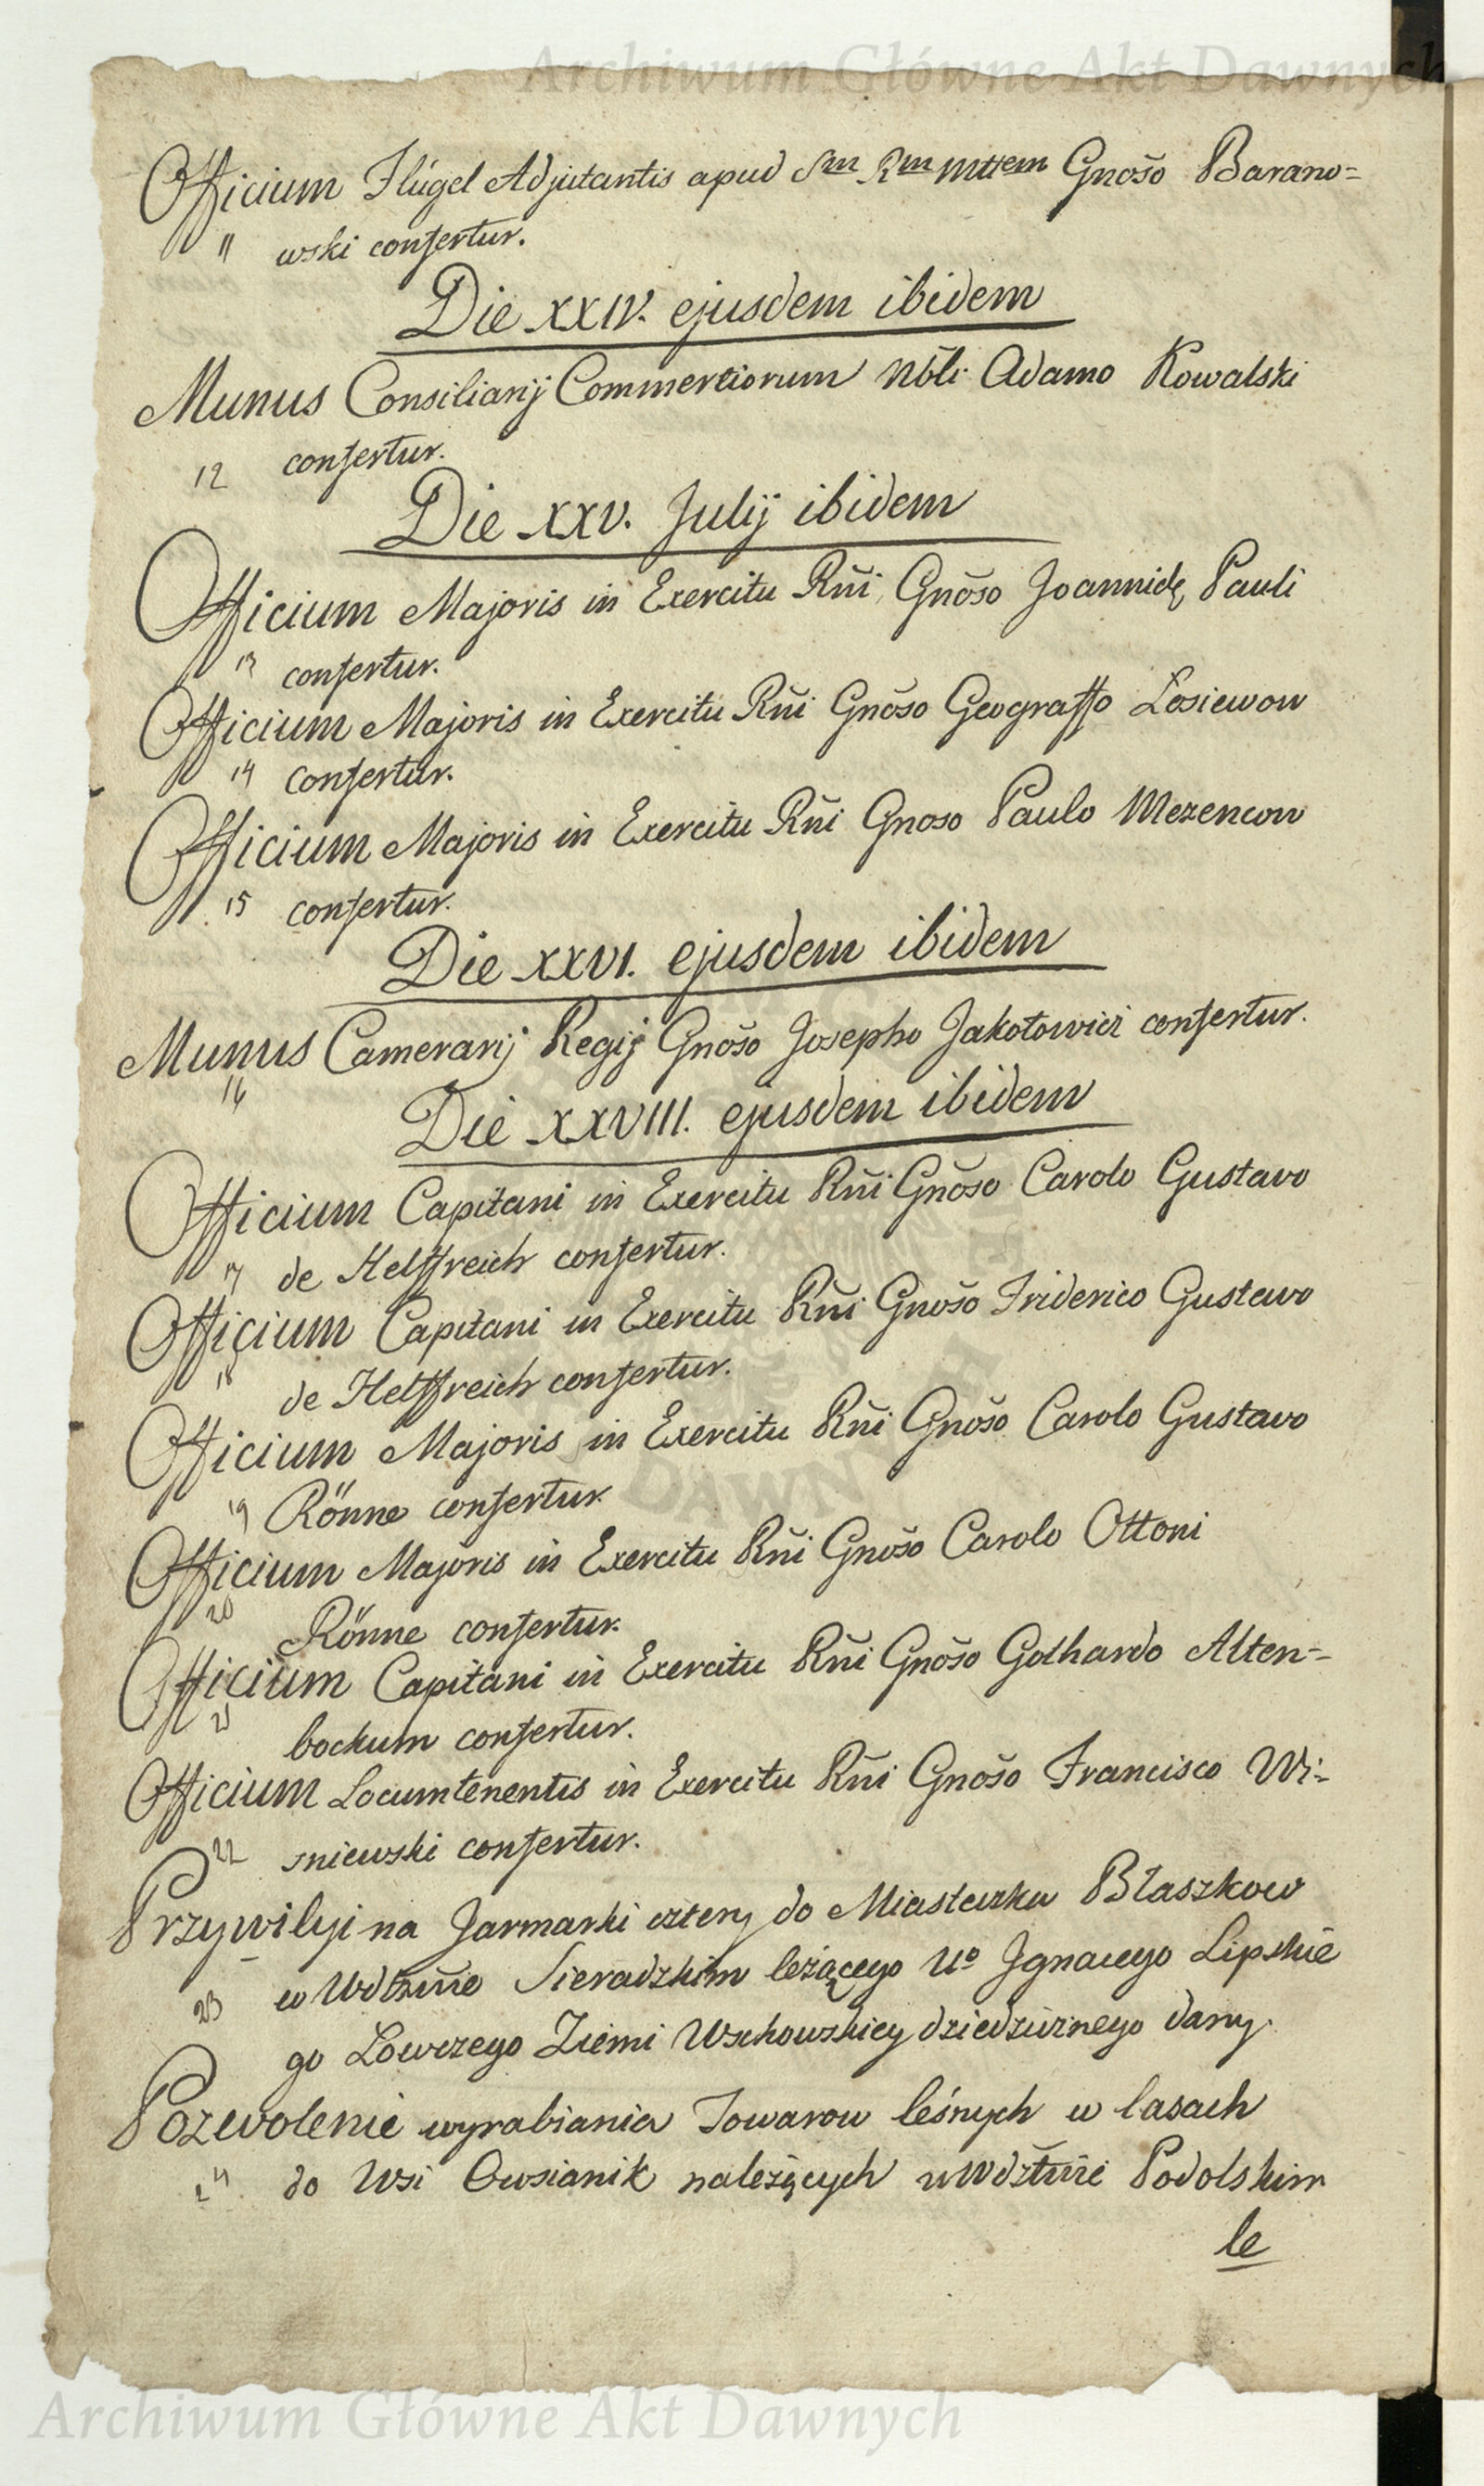 Archiwum Główne Akt Dawnych
Officium Flügel Adjutantis apud Sm Rm Mttem Gnõso Barano=
11 wski confertur.
Die XXIV. ejusdem ibidem
Munus Consiliarij Commerciorum Nõli Adamo Kowalski
12 confertur.
Die XXV. Julij ibidem
Officium Majoris in Exercitu Rñi Gnõso Joannide Pauli
13 confertur.
Officium Majoris in Exercitu Rñi Gnõso Geograffo Losiewow
14 confertur.
Officium Majoris in Exercitu Rñi Gnoso Paulo Mezencow
15 confertur.
Die XXVI. ejusdem ibidem
Munus Camerarij Regij Gnõso Josepho Jakołowicz confertur.
16
Die XXVIII. ejusdem ibidem
Officium Capitani in Exercitu Rñi Gnõso Carolo Gustavo
17 de Helffreich confertur.
Officium Capitani in Exercitu Rñi Gnõso Friderico Gustavo
18 de Helffreich confertur.
Officium Majoris in Exercitu Rñi Gnõso Carolo Gustavo
19 Rönne confertur.
Officium Majoris in Exercitu Rñi Gnõso Carolo Ottoni
20 Rönne confertur.
Officium Capitani in Exercitu Rñi Gnõso Gothardo Alten=
21 bockum confertur.
Officium Locumtenentis in Exercitu Rñi Gnõso Francisco Wi=
22 sniewski confertur.
Przywilej na Jarmarki cztery do Miasteczka Błaszkow
23 w Wdztwie Sieradzkim leżącego Uo Jgnacego Lipskie
go Lowczego Ziemi Wschowskiey dziedzicznego dany.
Pozwolenie wyrabiania Towarow leśnych w lasach
24 do Wsi Owsianik należących w Wdztwie Podolskim
le
Archiwum Główne Akt Dawnych